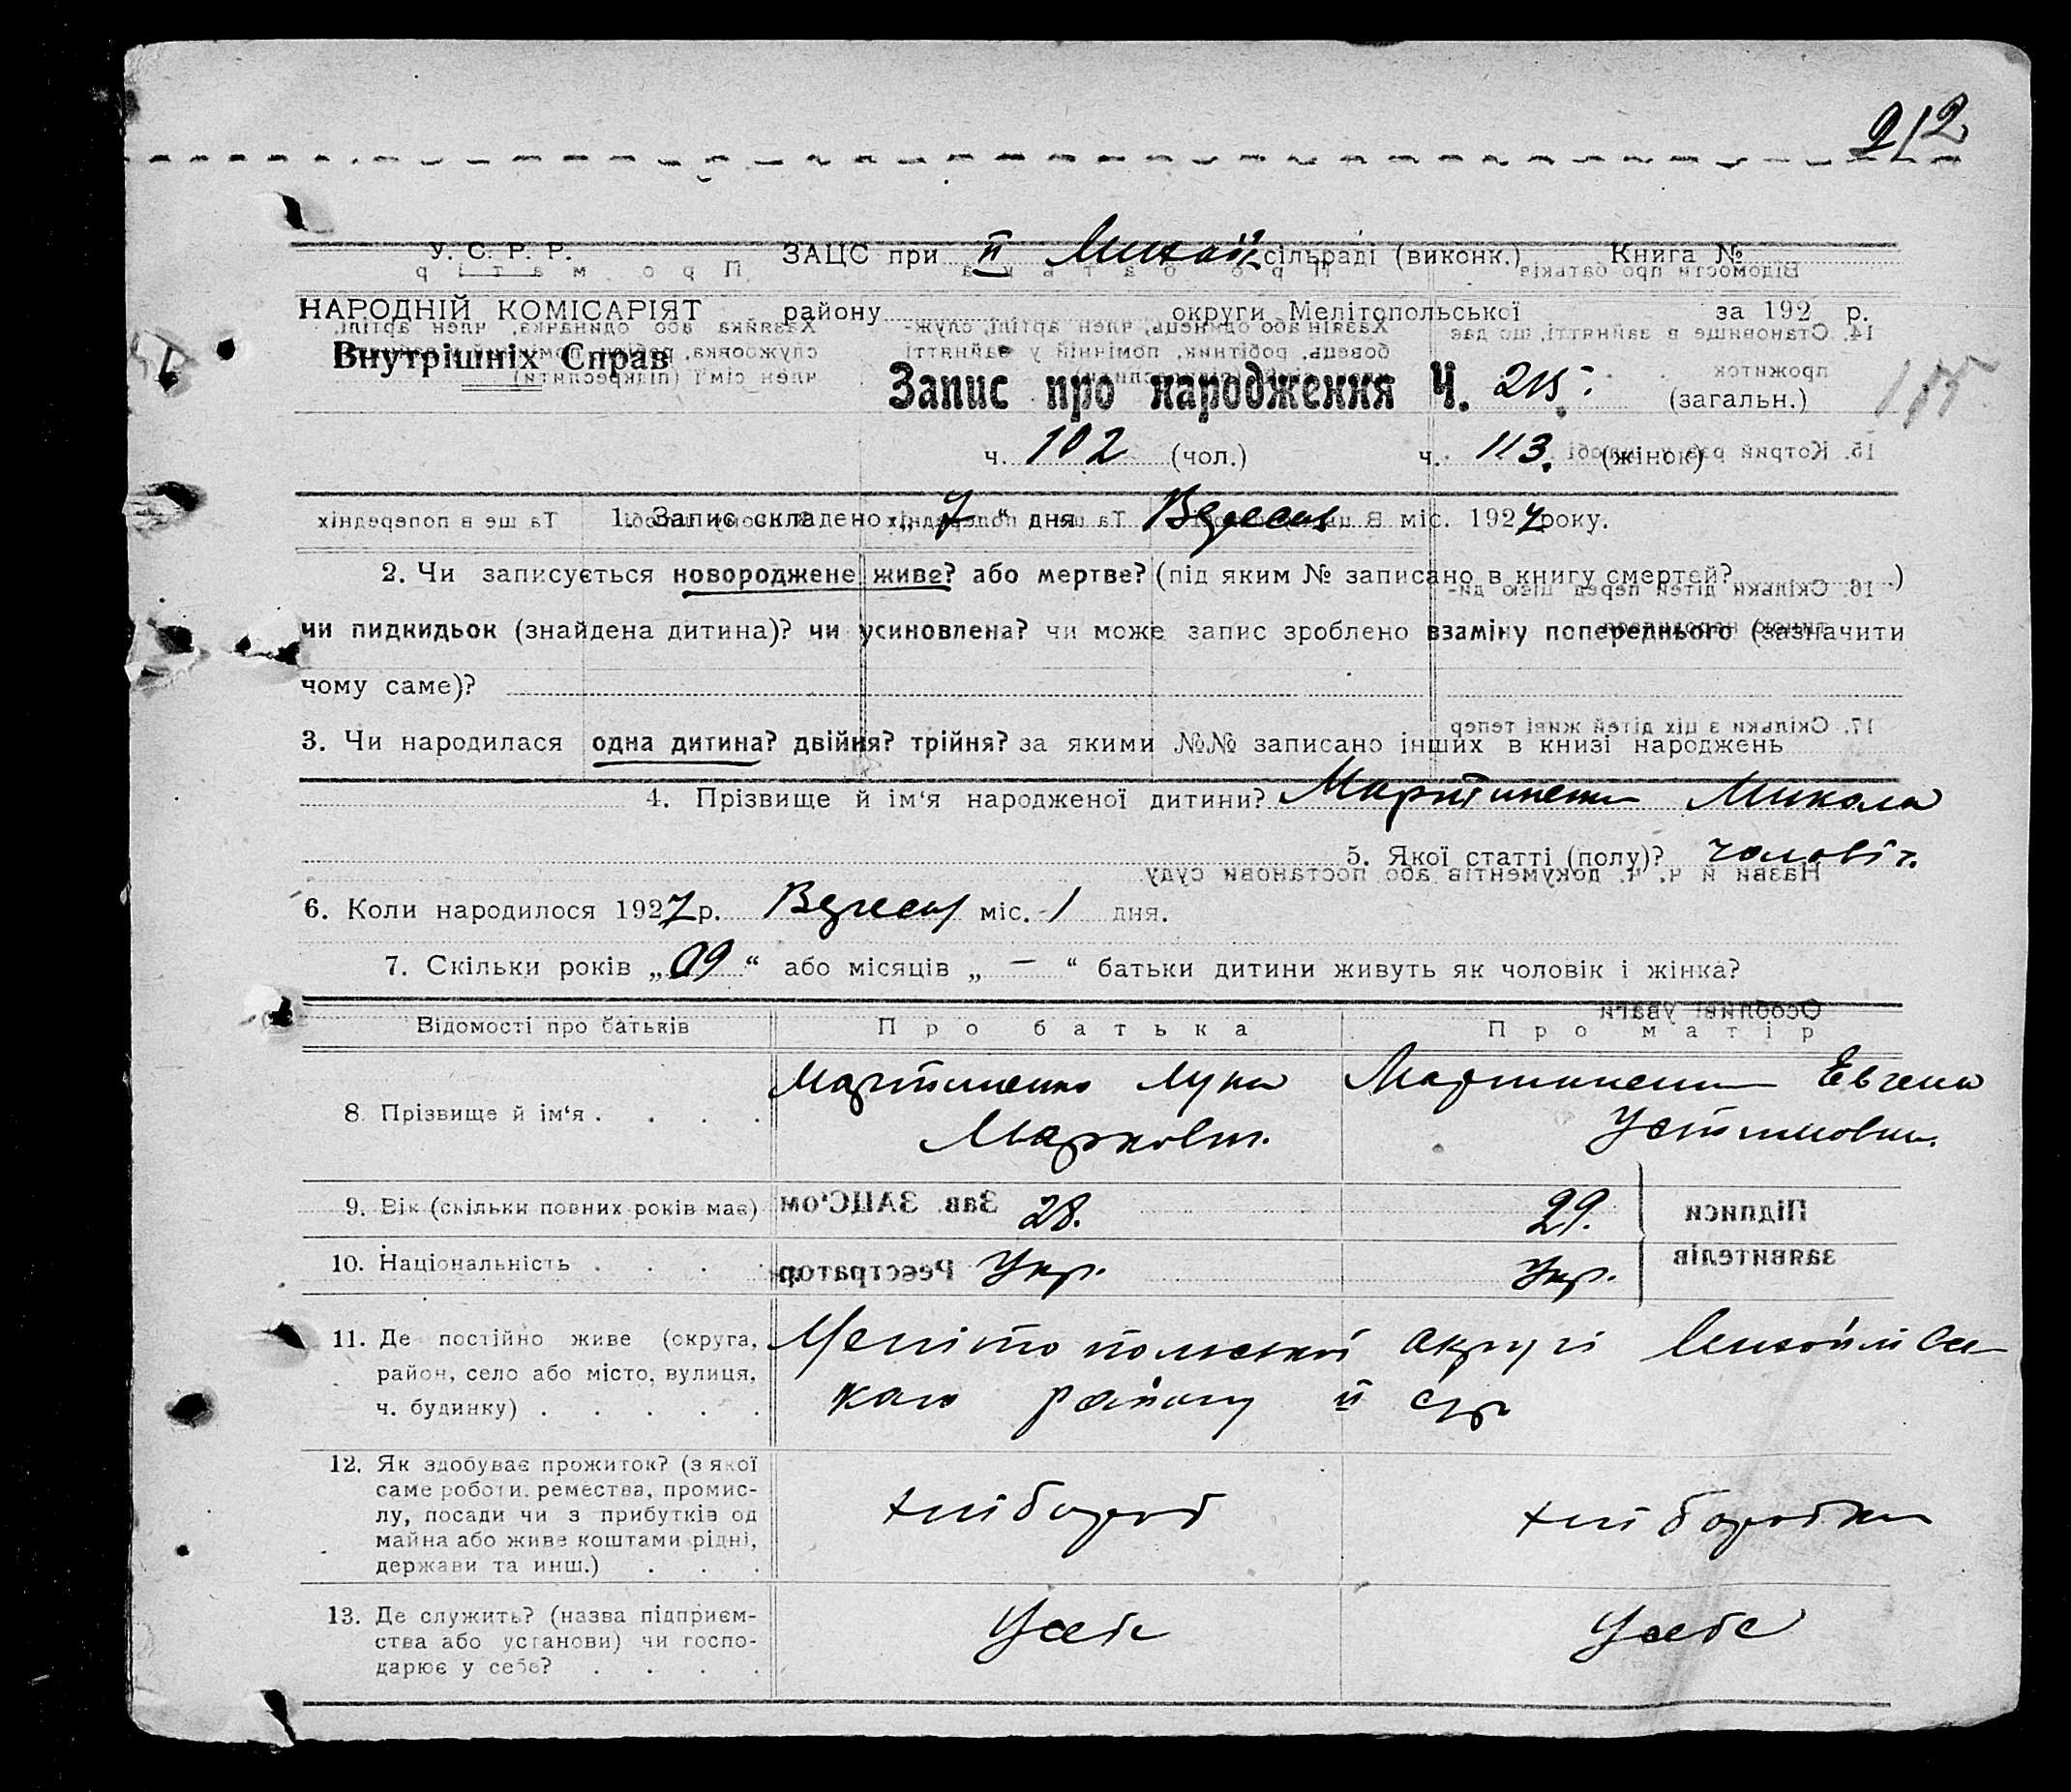 212
У. С. Р. Р. ЗАЦС при ІІ Михайл сільраді (виконк.) Книга №
НАРОДНІЙ КОМІСАРІЯТ району округи Мелітопольської за 192 р.
Внутрішніх Справ
Запис про народження Ч. 215. (загальн.)
ч. 102 (чол.) ч. 113. (жінок)
1. Запис складено „ 7 “ дня Вересня міс. 1927 року.
2. Чи записується новороджене живе? або мертве? (під яким № записано в книгу смертей? )
чи пидкидьок (знайдена дитина)? чи усиновлена? чи може запис зроблено взаміну попереднього (зазначити
чому саме)?
3. Чи народилася одна дитина? двійня? трійня? за якими №№ записано інших в книзі народжень
4. Прізвище й ім‘я народженої дитини? Мартиненко Микола
5. Якої статті (полу)? чоловіч.
6. Коли народилося 1927 р. Вересня міс. 1 дня.
7. Скільки років „ 09 “ або місяців „ — “ батьки дитини живуть як чоловік і жінка?
Відомості про батьків Про батька Про матір
8. Прізвище й ім‘я . . . . Мартиненко Лука Мартиненко Евгена
Маркович. Устимовна.
9. Вік (скільки повних років має) 28. 29.
10. Національність . . . . Укр. Укр.
11. Де постійно живе (округа, Мелітопольської округи
район, село або місто, вулиця, кого району ІІ
ч. будинку) . . . . .
12. Як здобуває прожиток? (з якої
саме роботи, ремества, промис-
лу, посади чи з прибутків од хлібороб хлібаробка
майна або живе коштами рідні,
держави та инш.) . . .
13. Де служить? (назва підприєм-
ства або установи) чи госпо- У себе У себе
дарює у себе? . . . .